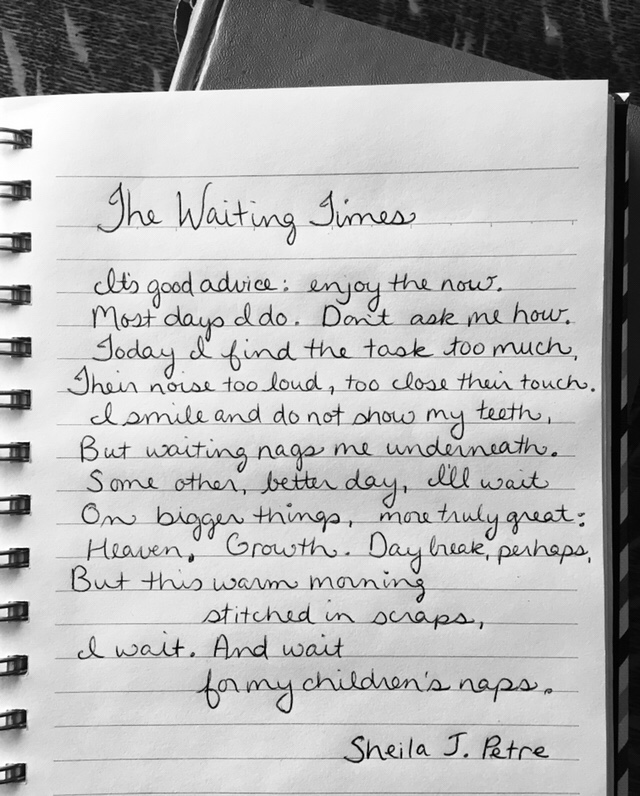 The Waiting Times
It's good advice: enjoy the now.
Most days I do. Don't ask me how.
Today I find the task too much,
Their noise too loud, too close their touch.
I smile and do not show my teeth,
But waiting nags me underneath.
Some other, better day, I'll wait
On bigger things, more truly great:
Heaven. Growth. Daybreak, perhaps,
But this warm morning
stitched in scraps,
I wait. And wait
for my children's naps.
Sheila J. Petre